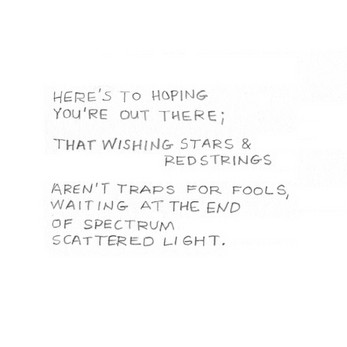 HERE'S TO HOPING
YOU'RE OUT THERE;
THAT WISHING STARS &
RED STRINGS
AREN'T TRAPS FOR FOOLS,
WAITING AT THE END
OF SPECTRUM
SCATTERED LIGHT.